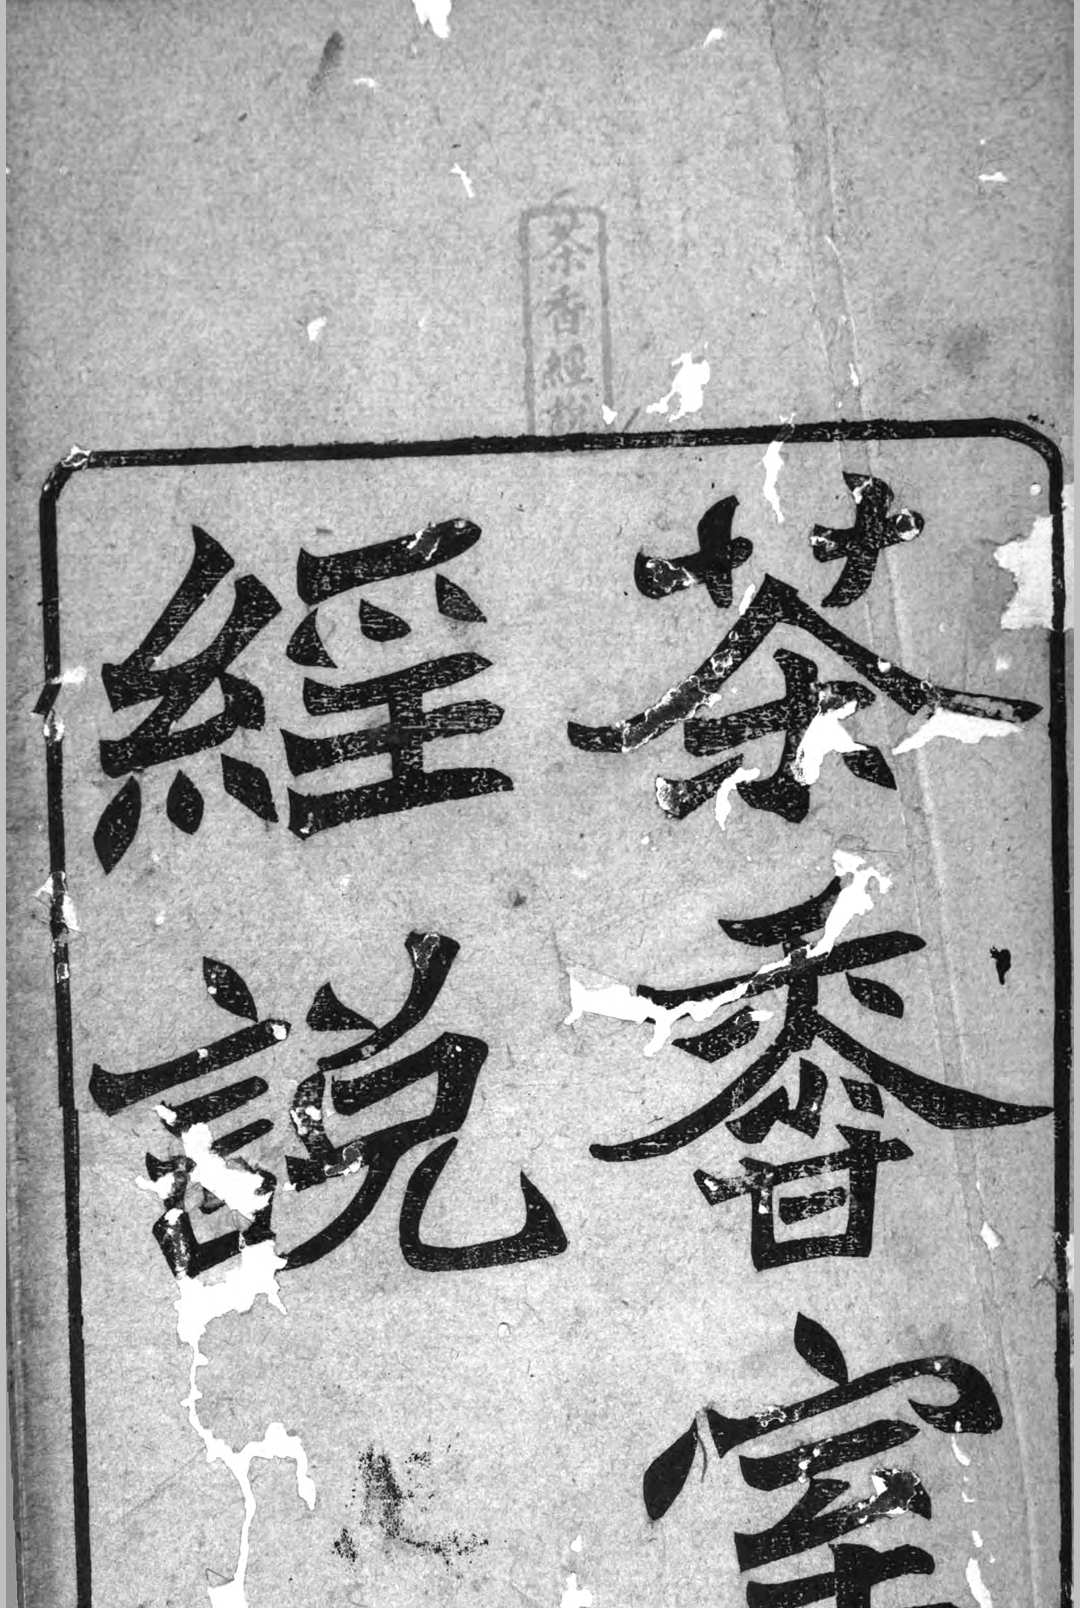 茶香經說
茶香室
經說